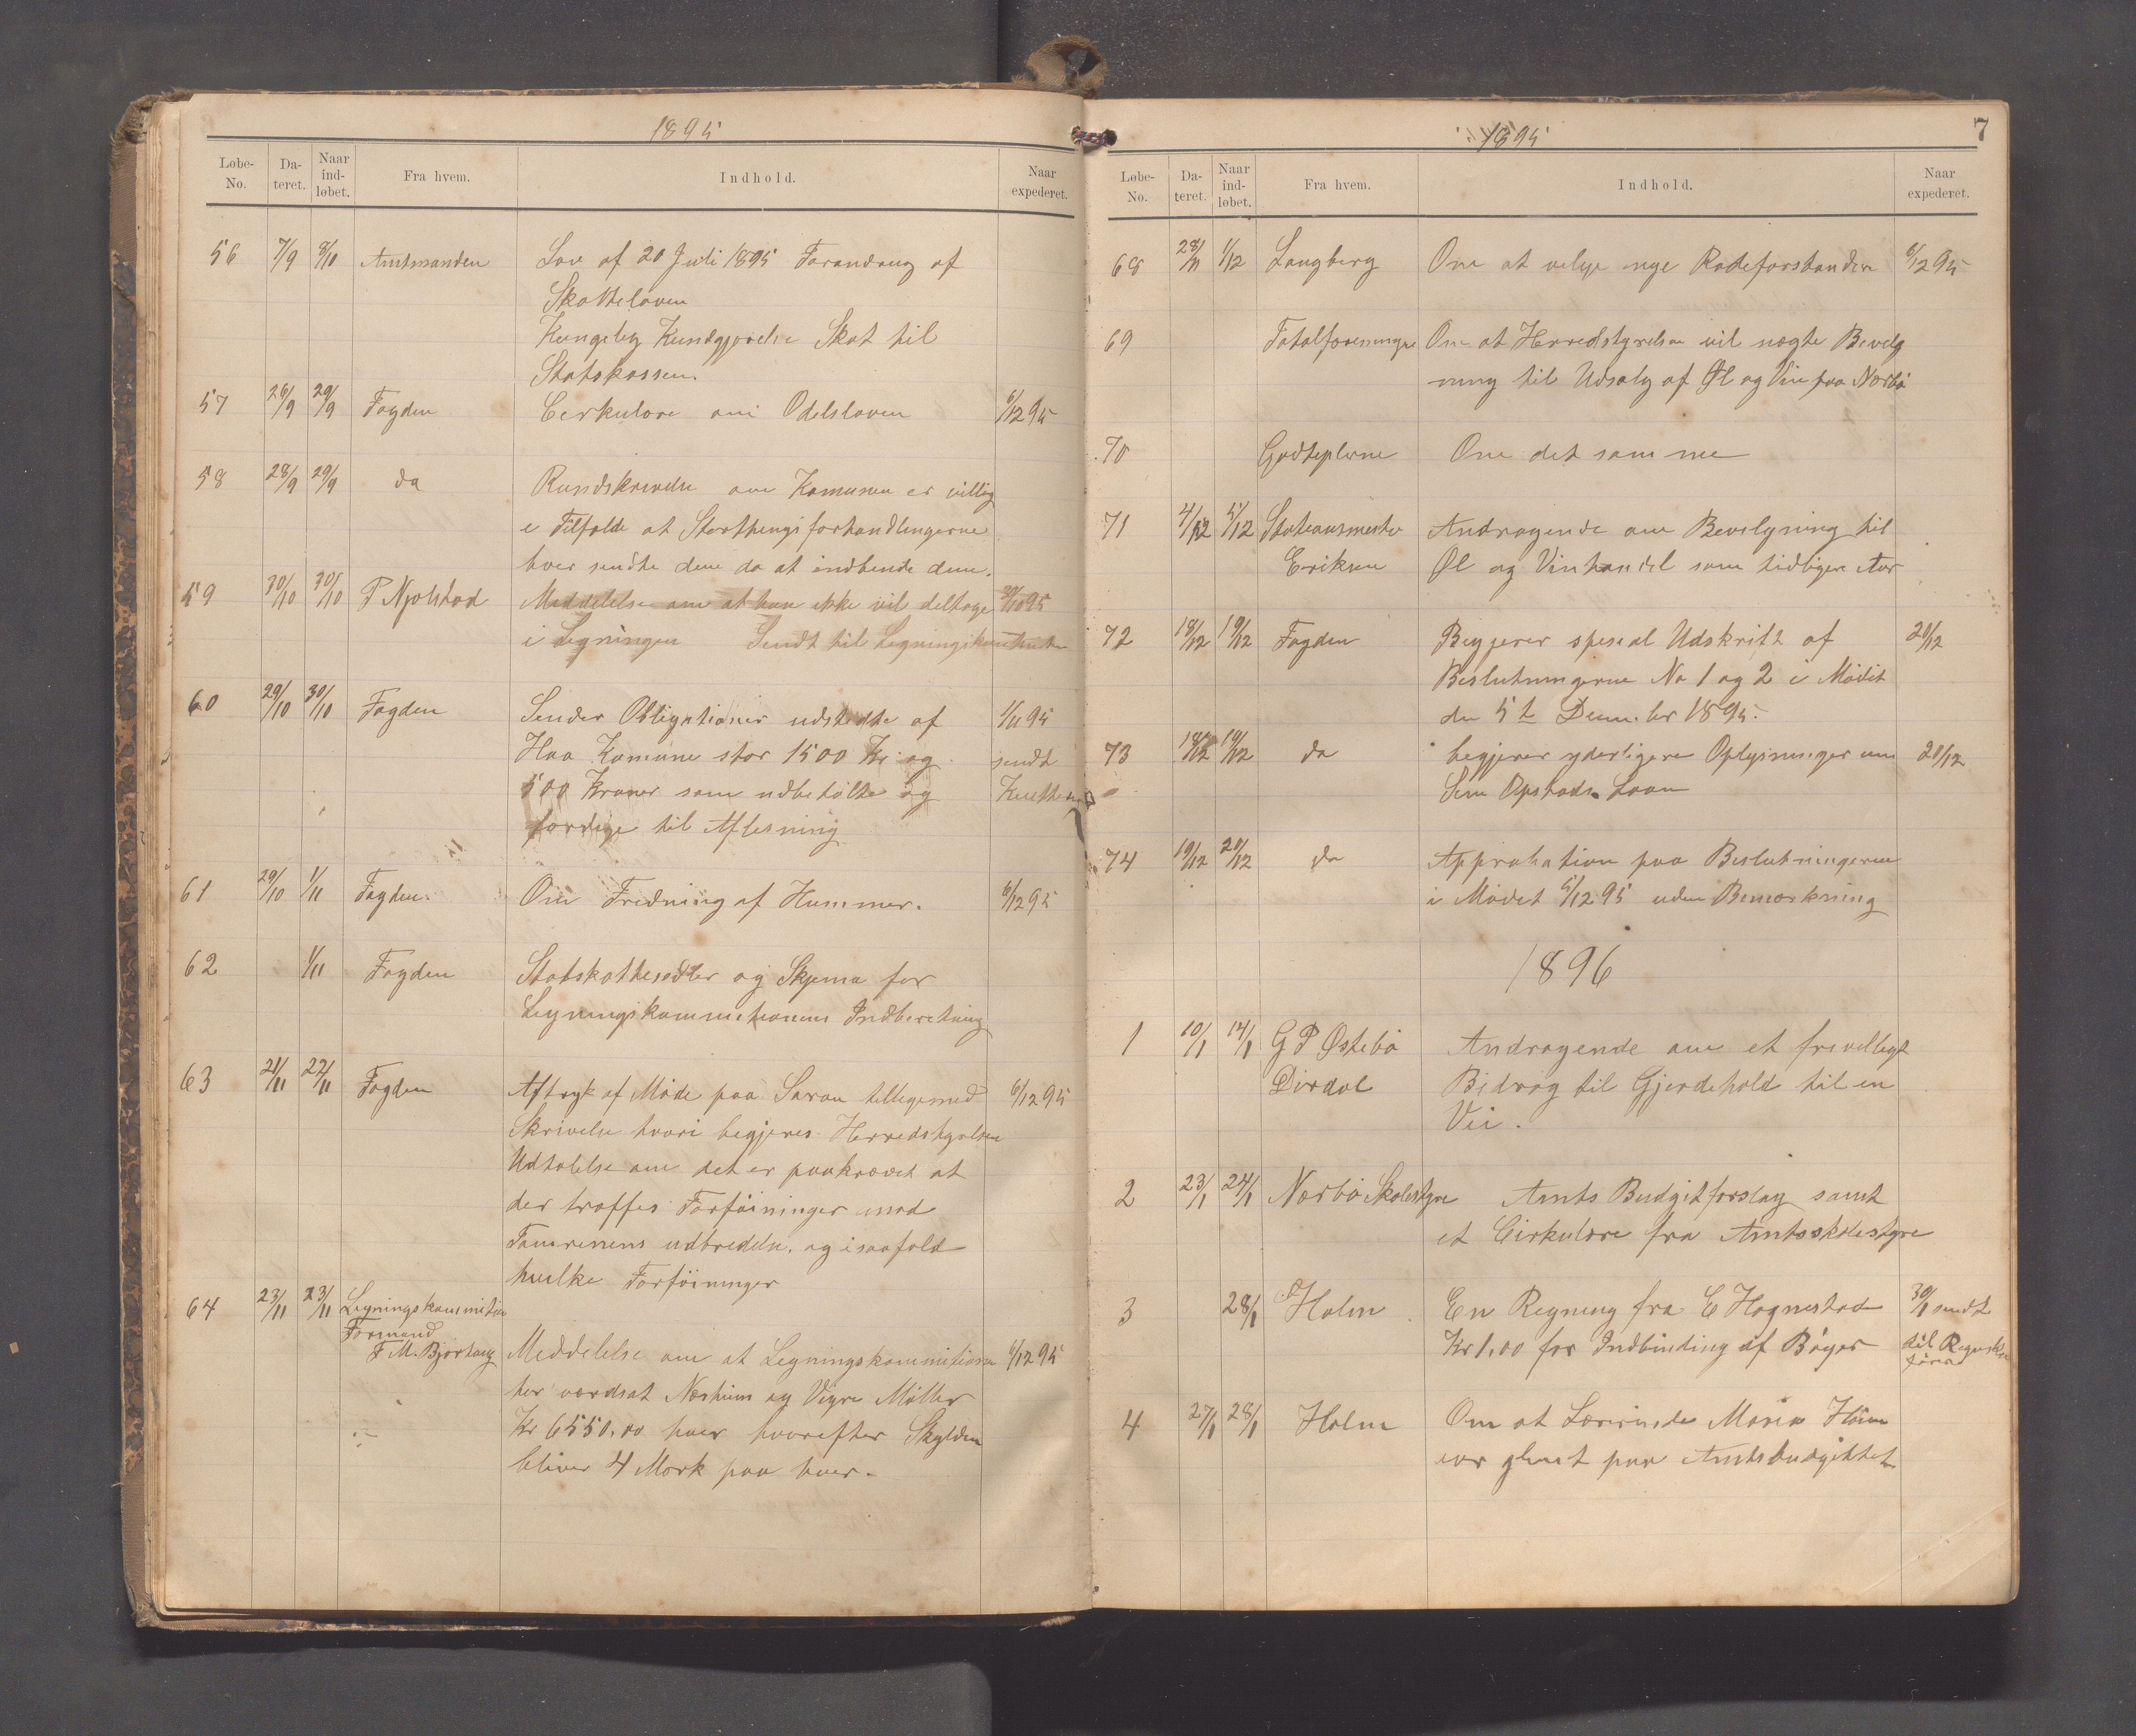 1895
Løbe-No. Da-teret. Naar ind-løbet. Fra hvem. Indhold. Naar expederet.
56 7/9 8/10 Amtmanden Lov af 20 Juli 1895 Forandring af
Skatteloven
Kongelig Kundgjørelse Skat til
Statskassen.
57 26/9 29/9 Fogden Cirkulære om Odelsloven 6/12 95
58 28/9 29/9 do Rundskrivelse om Komunen er villig
i Tilfælde at Storthingsforhandlingerne
bver sendte dem da at indbinde dem.
59 30/10 30/10 P Njølstad Meddelelse om at han ikke vil deltage 30/10 95
i Ligningen Sendt til
60 29/10 30/10 Fogden Sender Obligationer udstedte af 1/11 95
Haa Komune stor 1500 Kr og sendt
500 Kroner som udbetalte og
færdige til Aflesning
61 29/10 1/11 Fogden. Om Fredning af Hummer. 6/12 95
62 1/11 Fogden Statskattesedler og Skjema for
Ligningskommitionens Indberetning
63 21/11 22/11 Fogden Aftryk af Møde paa tilligemed 6/12 95
Skrivelse hvori begjeres Herredstyrelsen
Udtalelse om det er paakrævet at
der træffes Forføininger mod
udbredelse. og isaafald
hvilke Forføininger
64 23/11 23/11 Ligningskommition
Formand
T. M. Bjorhaug Meddelelse om at Ligningskommitionen 6/12 95
har værdsat Nærheim og Vigre Møller
Kr 6550,00 hver hvorefter Skylden
bliver 4 Mark paa hver.
1895 7
Løbe-No. Da-teret. Naar ind-løbet. Fra hvem. Indhold. Naar expederet.
68 28/11 1/12 Langberg Om at velge nye Rodeforstandere 6/12 95
69 Totalforeningen Om at Herredstyrelsen vil nægte Bevilg
ning til Udsalg af Øl og Vin paa Nærbø
70 Godtemplerne Om det samme
71 4/12 5/12 Stationsmester Andragende om Bevilgning til
Eriksen Øl og Vinhandel som tidligere Aar
72 18/12 19/12 Fogden Begjerer spesial Udskrift af 20/12
Beslutningerne No 1 og 2 i Mødet
den 5te December 1895.
73 18/12 19/12 do begjerer yderligere Oplysninger om 20/12
Sem Opstads Laan
74 19/12 20/12 do Approbation paa Beslutningerne
i Mødet 5/12 95 uden Bemærkning
1896
1 10/1 14/1 G P Østebø Andragende om et frivelligt
Dirdal Bidrag til Gjerdehold til en
Vei.
2 23/1 24/1 Nærbø Skolestyre Amts Budgetforslag samt
et Cirkulære fra Amtsskolestyre
3 28/1 Holm En Regning fra E Hognestad 30/1 sendt
Kr 1,00 for Indbinding af Bøger til Regnskabs
fører
4 27/1 28/1 Holm Om at Lærerinde Maria
var glemt paa Amtsbudgettet